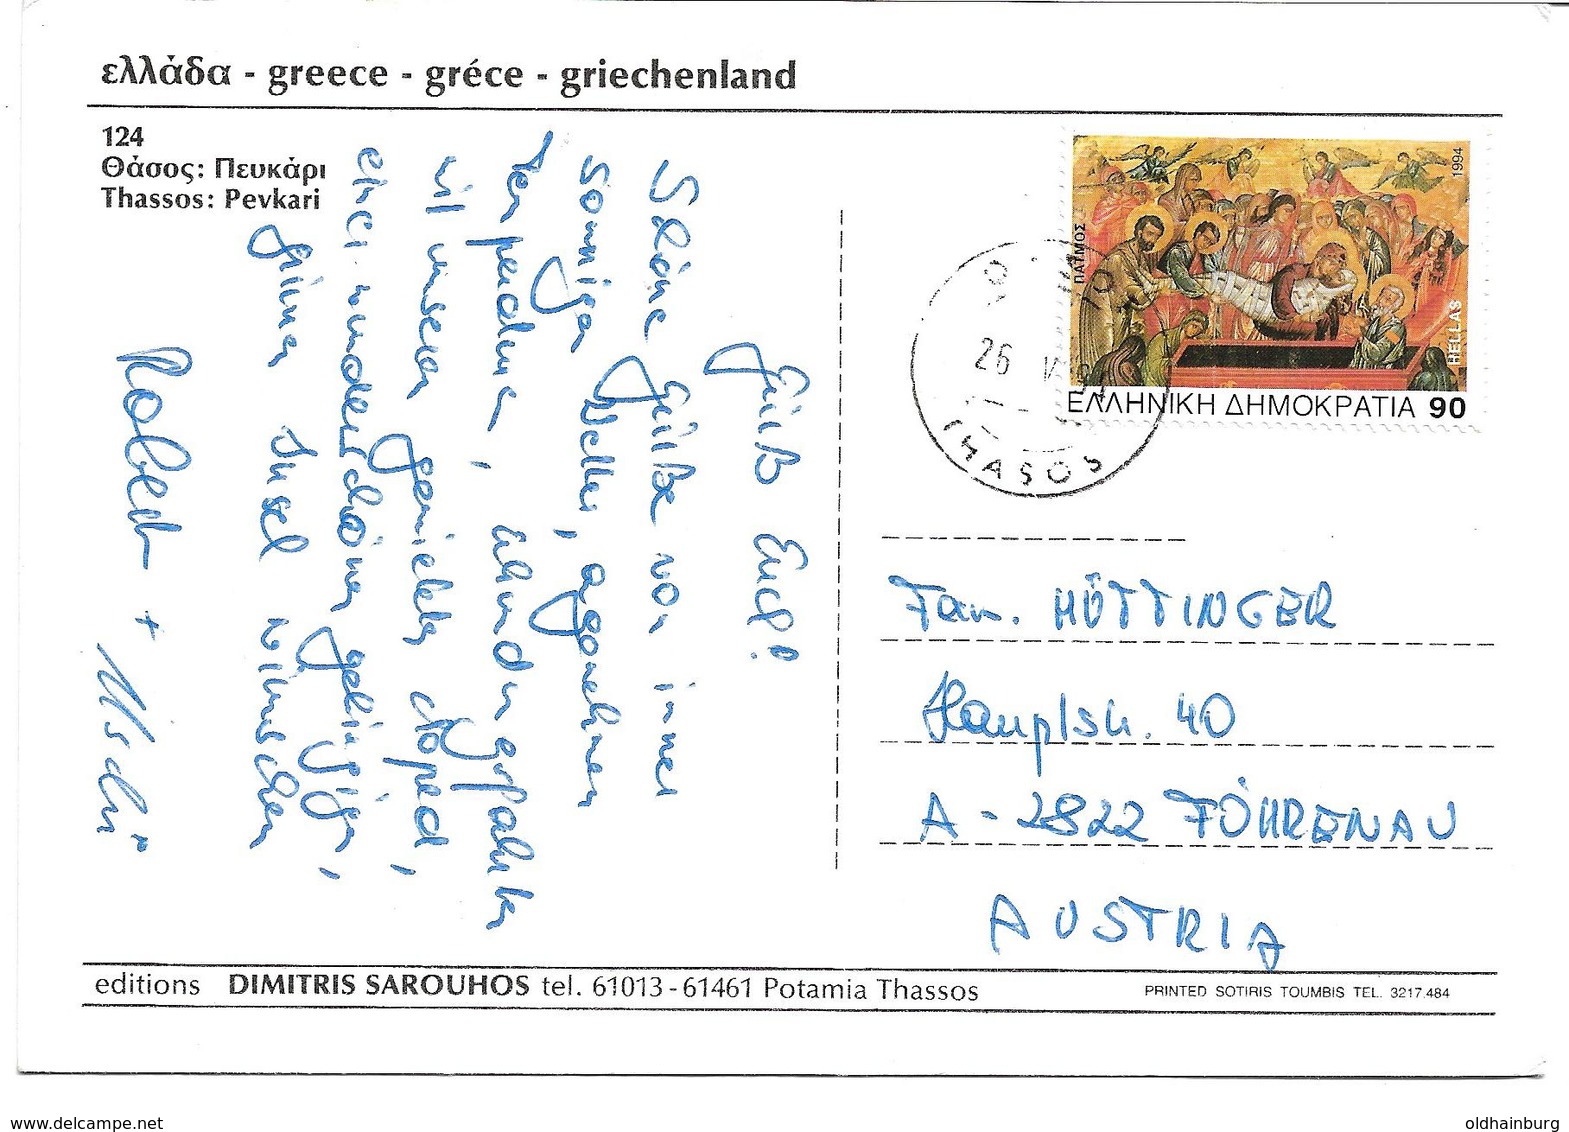 ελλάδα - greece - gréce - griechenland
124
Θάσος: Πευκάρι
Thassos: Pevkari
Grüß Euch!
Schöne Grüße von immer
sonniger Welle, angenehmen
Temperaturen,
mit unserer Moped,
einer wunderschönen
grünen Insel wünschen
Robert + Uschi
1994
ΠΑΤΜΟΣ
HELLAS
ΕΛΛΗΝΙΚΗ ΔΗΜΟΚΡΑΤΙΑ 90
26
THASOS
Fam. HÜTTINGER
Hauptstr. 40
A - 2822 FÖHRENAU
AUSTRIA
editions DIMITRIS SAROUHOS tel. 61013 - 61461 Potamia Thassos
PRINTED SOTIRIS TOUMBIS TEL. 3217.484
www.delcampe.net
oldhainburg